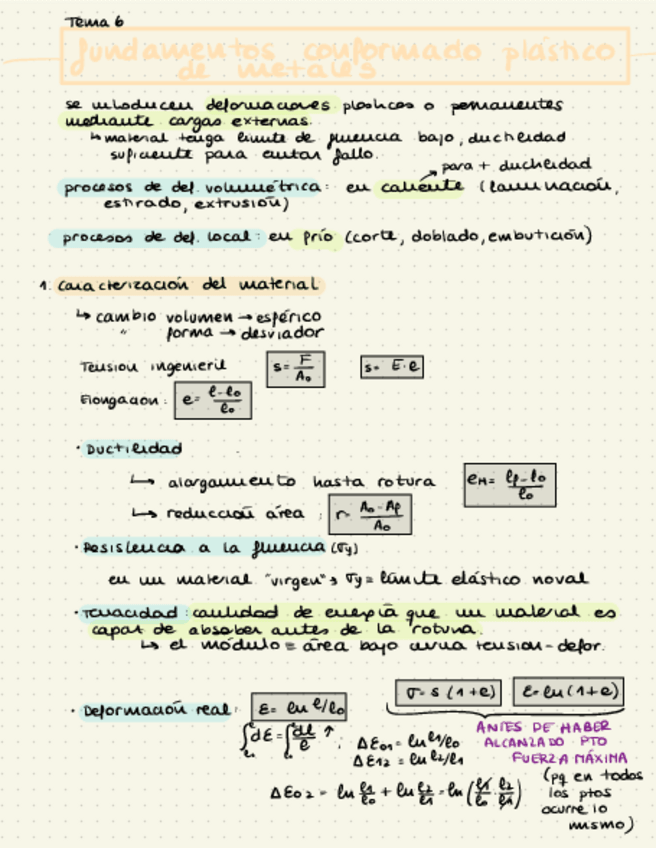 Tema 6
fundamentos conformado plástico
de metales
se introducen deformaciones plásticas o permanentes
mediante cargas externas.
↳ material tenga límite de fluencia bajo, ductilidad
suficiente para evitar fallo.
→ para + ductilidad
procesos de def. volumétrica: en caliente (laminación,
estirado, extrusión)
procesos de def. local: en frío (corte, doblado, embutición)
1. Caracterización del material
↳ cambio volumen → esférico
" forma → desviador
Tensión ingenieril s = F/A₀ s = E·e
Elongación: e = (l-l₀)/l₀
· Ductilidad
↳ alargamiento hasta rotura e_M = (l_f-l₀)/l₀
↳ reducción área : r = (A₀-A_f)/A₀
· Resistencia a la fluencia (σy)
en un material "virgen" → σy = límite elástico noval
· Tenacidad: cantidad de energía que un material es
capaz de absorber antes de la rotura.
↳ el módulo = área bajo curva tensión-defor.
· Deformación real: ε = ln l/l₀ σ = s (1+e) ε = ln (1+e)
ANTES DE HABER
ALCANZADO PTO
FUERZA MÁXIMA
(pq en todos
los ptos
ocurre lo
mismo)
∫dε = ∫dl/l ; Δε₀₁ = ln l₁/l₀
Δε₁₂ = ln l₂/l₁
Δε₀₂ = ln l₁/l₀ + ln l₂/l₁ = ln (l₁/l₀ · l₂/l₁)